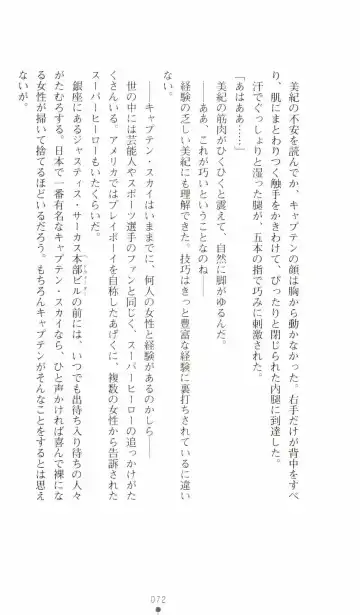 美紀の不安を読んでか、キャプテンの顔は胸から動かなかった。右手だけが背中をすべ
り、肌にまとわりつく触手をかきわけて、ぴったりと閉じられた内腿に到達した。
汗でぐっしょりと湿った腿が、五本の指で巧みに刺激された。
「あはああ……」
美紀の筋肉がひくひくと震えて、自然に脚がゆるんだ。
――ああ、これが巧いということなのね――
経験の乏しい美紀にも理解できた。技巧はきっと豊富な経験に裏打ちされているに違い
ない。
――キャプテン・スカイはいままでに、何人の女性と経験があるのかしら――
世の中には芸能人やスポーツ選手のファンと同じく、スーパーヒーローの追っかけがた
くさんいる。アメリカではプレイボーイを自称したあげくに、複数の女性から告訴された
スーパーヒーローもいたくらいだ。
銀座にあるジャスティス・サーカス本部ビルの前には、いつでも出待ち入り待ちの人々
がたむろする。日本で一番有名なキャプテン・スカイなら、ひと声かければ喜んで裸にな
る女性が掃いて捨てるほどいるだろう。もちろんキャプテンがそんなことをするとは思え
ないが。
072